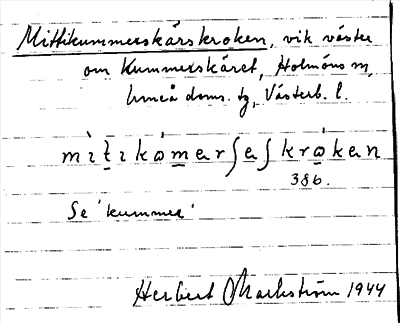 Mittikummerskärskroken, vik väster
om Kummerskäret, Holmöns sn,
Umeå doms. tg, Västerb. l.
mìtikómerʃeʃkròken
386.
Se 'kummer'
Herbert Markström 1944